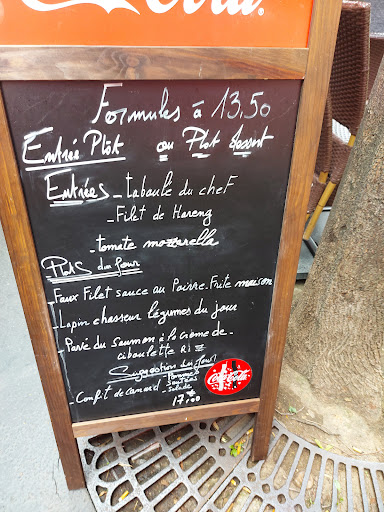 Coca-Cola®
Formules à 13,50
Entrée Plat ou Plat dessert
Entrées - Taboule du chef
- Filet de Hareng
- tomate mozzarella
Plats du Jour
- Faux Filet sauce au Poivre. Frite maison
- Lapin chasseur légumes du jour
- Pavé du saumon à la crème de -
ciboulette Riz
Suggestion du jour
- Confit de canard Pommes
sautées
- salade
17,00
Coca-Cola